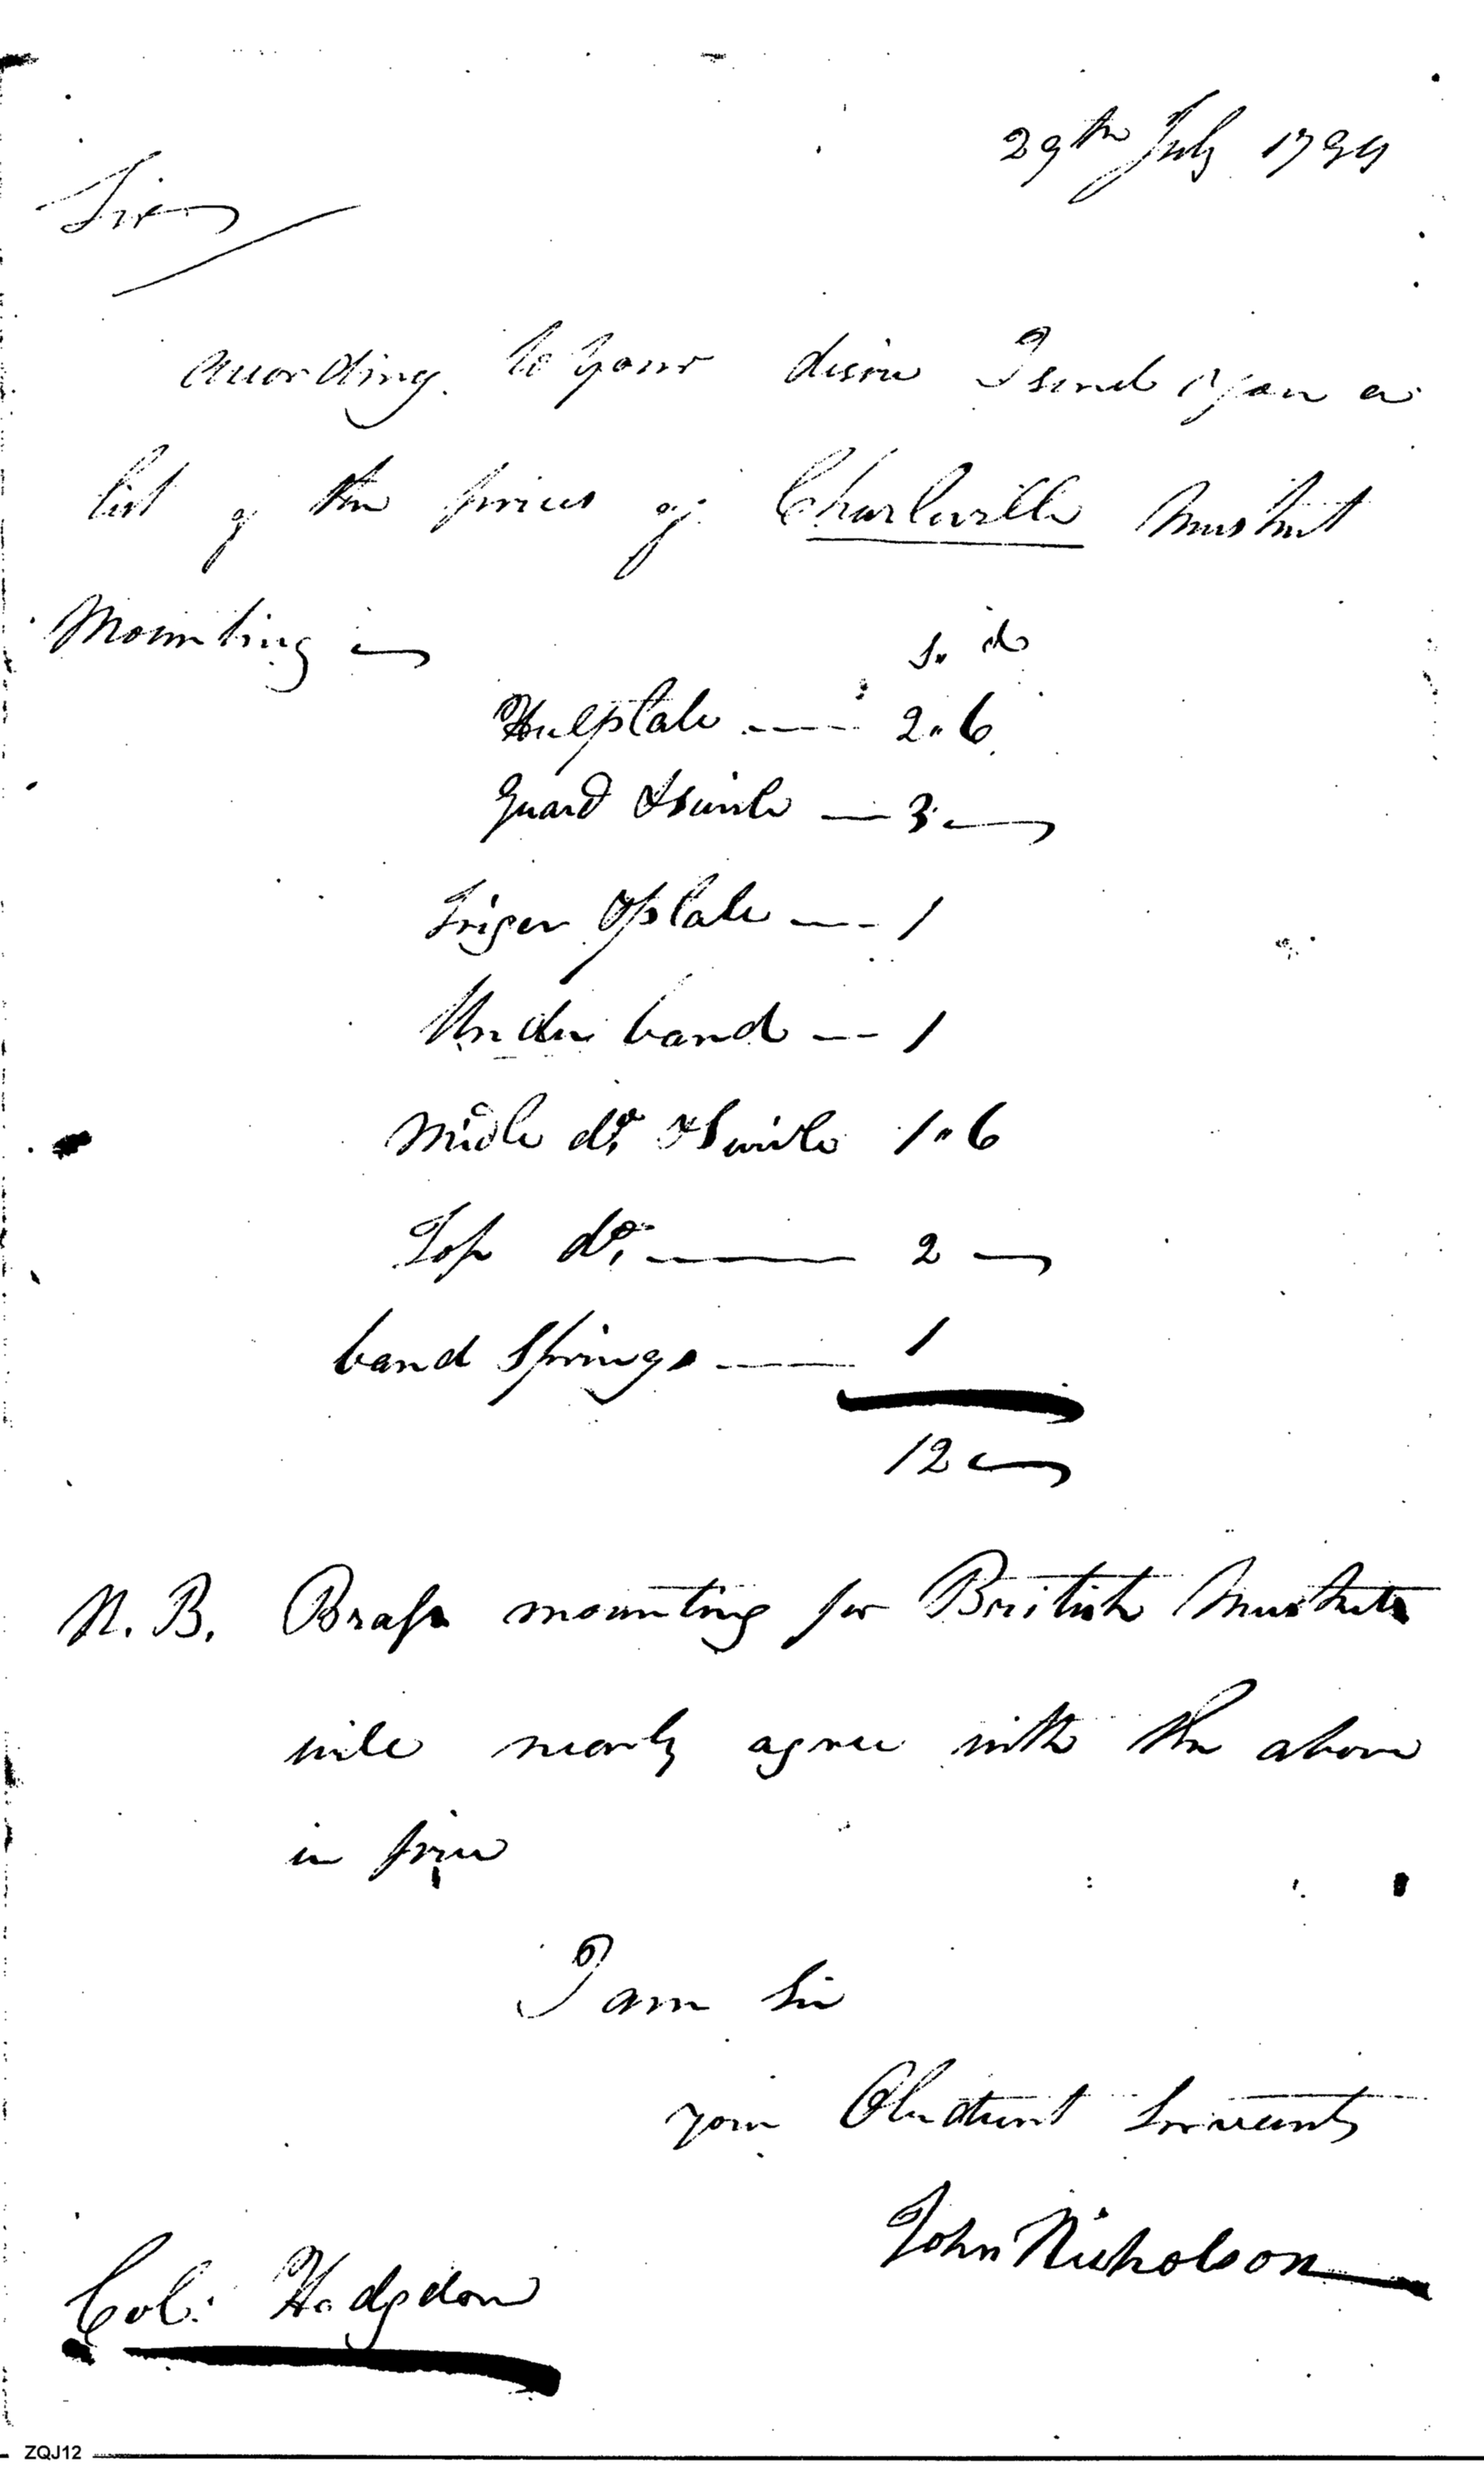 29th July 1799
Sir
according to your desire I send you a
list of the prices of Charleville Musket
Mounting
s. d
Heelplate 2.. 6
Guard & Swivle 3
Triger & plate 1
Under band 1
Midle do. & Swivle 1.. 6
Top do. 2
band Springs 1
12
N. B. Brass mounting for British Muskets
will nearly agree with the above
in price
I am Sir
your Obedient Servant
John Nicholson
Col: Hodgdon
ZQJ12